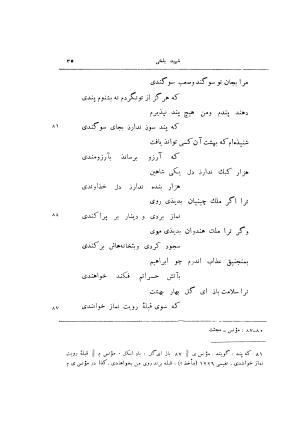 شهید بلخی ۳۵
مرا بجان تو سوگند وصعب سوگندی
که هرگز از تونگردم نه بشنوم پندی
دهند پندم ومن هیچ پند نپذیرم
۸۱ که پند سود ندارد بجای سوگندی
شنیده‌ام که بهشت آن کسی تواند یافت
که آرزو برساند بآرزومندی
هزار کبك ندارد دل یکی شاهین
هزار بنده ندارد دل خداوندی
ترا اگر ملك چینیان بدیدی روی
۸۴ نماز بردی و دینار بر پراکندی
وگر ترا ملك هندوان بدیدی موی
سجود کردی وبتخانه‌هاش برکندی
بمنجنیق عذاب اندرم چو ابراهیم
بآتش حسراتم فکند خواهندی
ترا سلامت باد ای گل بهار بهشت
۸۷ که سوی قبلهٔ رویت نماز خوانندی
۸۰-۸۷ : مؤنس - مجتث
۸۱ که پند ، گویند . مؤنس ی ‖ ۸۷ باد ای گل ، باد اسکل . مؤنس م ‖ قبلهٔ رویت
نماز خوانندی . نفیسی ۱۲۲۶ (مآخذ؟) ، قبله برند روی من بخواهندی . کذا در مؤنس ی م